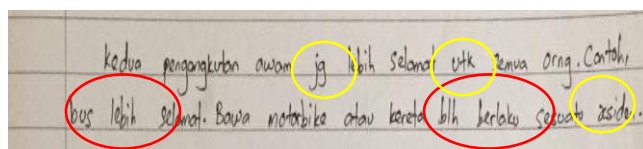 kedua pengangkutan awam jg lebih selamat utk semua orng. Contoh,
bus lebih selamat. Bawa motorbike atau kereta blh berlaku sesuatu asiden.